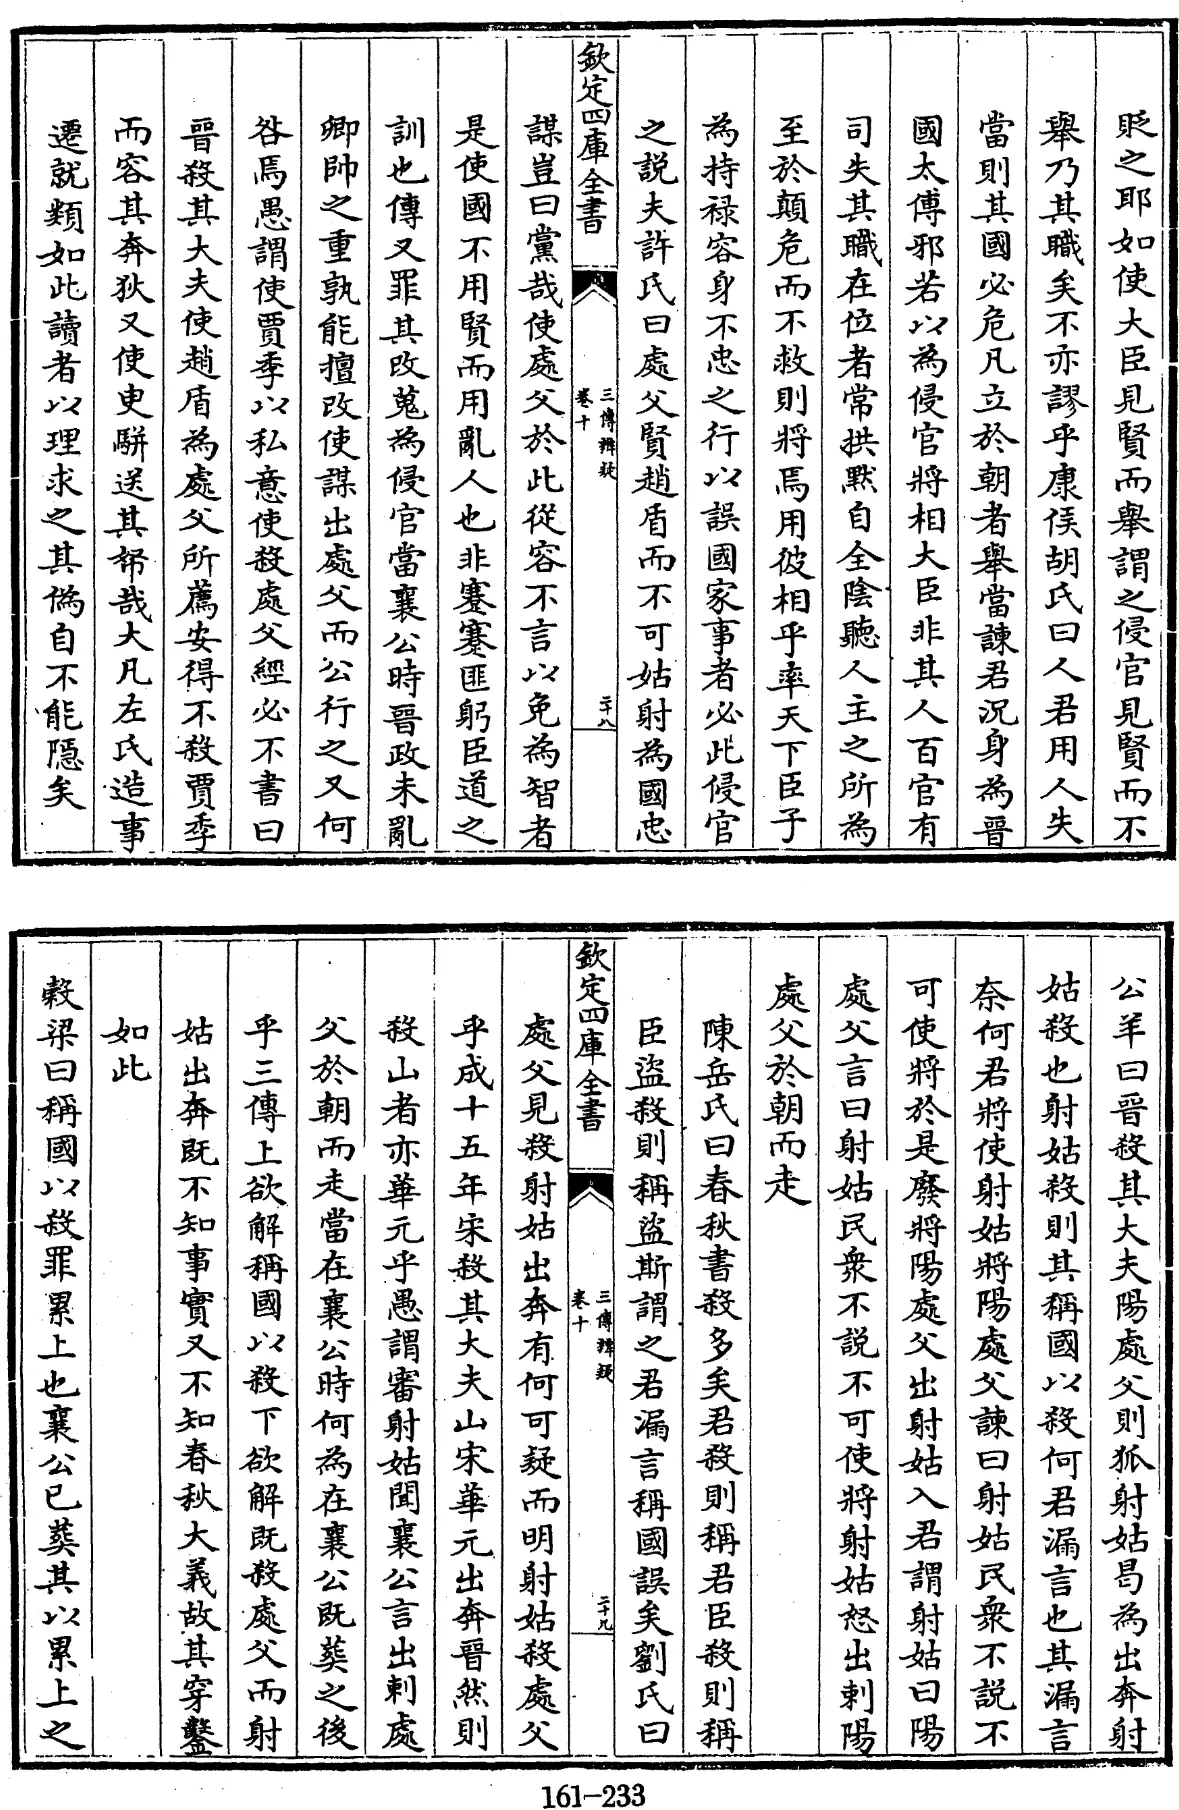 貶之耶如使大臣見賢而舉謂之侵官見賢而不
舉乃其職矣不亦謬乎康侯胡氏曰人君用人失
當則其國必危凡立於朝者舉當諫君況身為晉
國太傅邪若以為侵官將相大臣非其人百官有
司失其職在位者常拱黙自全陰聽人主之所為
至於顛危而不救則將焉用彼相乎率天下臣子
為持禄容身不忠之行以誤國家事者必此侵官
之説夫許氏曰處父賢趙盾而不可姑射為國忠
欽定四庫全書
三傳辨疑
卷十
二十八
謀豈曰黨哉使處父於此從容不言以免為智者
是使國不用賢而用亂人也非蹇蹇匪躬臣道之
訓也傳又罪其改蒐為侵官當襄公時晉政未亂
卿帥之重孰能擅改使謀出處父而公行之又何
咎焉愚謂使賈季以私意使殺處父經必不書曰
晉殺其大夫使趙盾為處父所薦安得不殺賈季
而容其奔狄又使臾駢送其帑哉大凡左氏造事
遷就類如此讀者以理求之其僞自不能隠矣
公羊曰晉殺其大夫陽處父則狐射姑曷為出奔射
姑殺也射姑殺則其稱國以殺何君漏言也其漏言
奈何君將使射姑將陽處父諫曰射姑民衆不説不
可使將於是廢將陽處父出射姑入君謂射姑曰陽
處父言曰射姑民衆不説不可使將射姑怒出刺陽
處父於朝而走
陳岳氏曰春秋書殺多矣君殺則稱君臣殺則稱
臣盜殺則稱盜斯謂之君漏言稱國誤矣劉氏曰
欽定四庫全書
三傳辨疑
卷十
二十九
處父見殺射姑出奔有何可疑而明射姑殺處父
乎成十五年宋殺其大夫山宋華元出奔晉然則
殺山者亦華元乎愚謂審射姑聞襄公言出刺處
父於朝而走當在襄公時何為在襄公既葬之後
乎三傳上欲解稱國以殺下欲解既殺處父而射
姑出奔既不知事實又不知春秋大義故其穿鑿
如此
穀梁曰稱國以殺罪累上也襄公已葬其以累上之
161-233